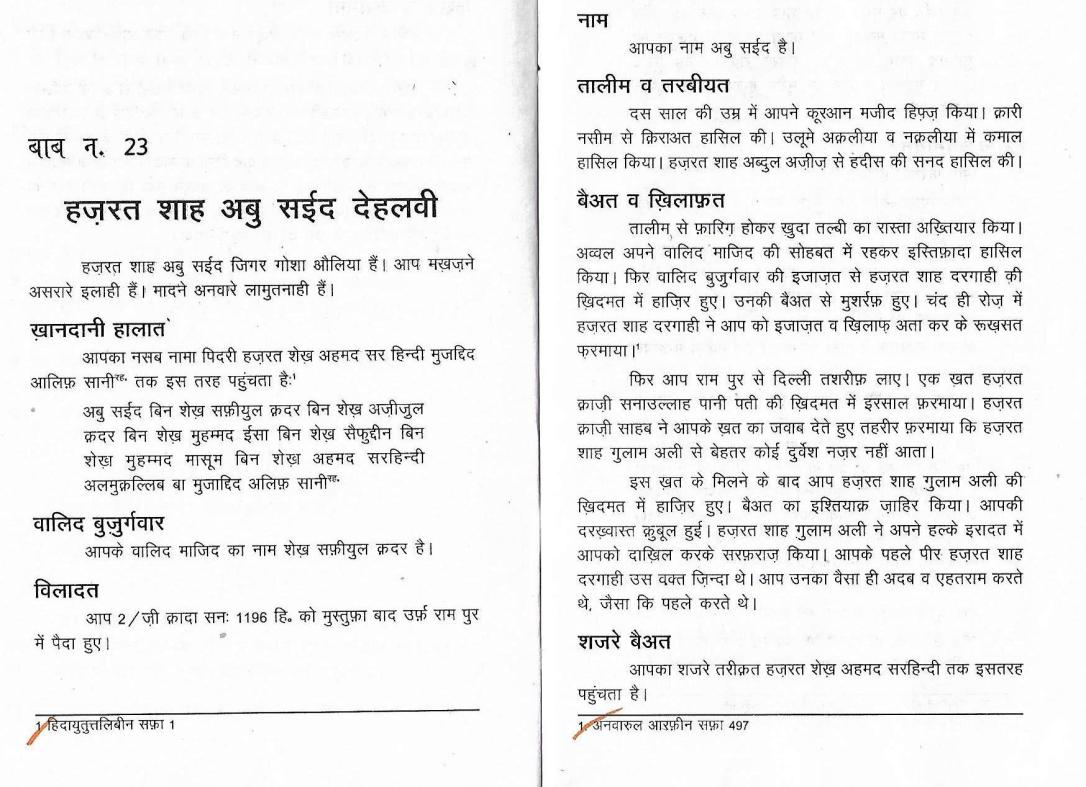 बाब न. 23
हज़रत शाह अबु सईद देहलवी
हज़रत शाह अबु सईद जिगर गोशा औलिया हैं। आप मख़ज़ने
असरारे इलाही हैं। मादने अनवारे लामुतनाही हैं।
ख़ानदानी हालात
आपका नसब नामा पिदरी हज़रत शेख़ अहमद सर हिन्दी मुजद्दिद
आलिफ़ सानीरह. तक इस तरह पहुंचता हैः1
अबु सईद बिन शेख़ सफ़ीयुल क़दर बिन शेख़ अज़ीजुल
क़दर बिन शेख़ मुहम्मद ईसा बिन शेख़ सैफुद्दीन बिन
शेख़ मुहम्मद मासूम बिन शेख़ अहमद सरहिन्दी
अलमुक़ल्लिब बा मुजाद्दिद अलिफ़ सानीरह.
वालिद बुज़ुर्गवार
आपके वालिद माजिद का नाम शेख़ सफ़ीयुल क़दर है।
विलादत
आप 2/ज़ी क़ादा सनः 1196 हि॰ को मुस्तुफ़ा बाद उर्फ़ राम पुर
में पैदा हुए।
1 हिदायुतुत्तलिबीन सफ़ा 1
नाम
आपका नाम अबु सईद है।
तालीम व तरबीयत
दस साल की उम्र में आपने कूरआन मजीद हिफ़्ज़ किया। क़ारी
नसीम से क़िराअत हासिल की। उलूमे अक़लीया व नक़लीया में कमाल
हासिल किया। हज़रत शाह अब्दुल अज़ीज़ से हदीस की सनद हासिल की।
बैअत व ख़िलाफ़त
तालीम से फ़ारिग़ होकर खुदा तल्बी का रास्ता अख़्तियार किया।
अव्वल अपने वालिद माजिद की सोहबत में रहकर इस्तिफ़ादा हासिल
किया। फिर वालिद बुजुर्गवार की इजाज़त से हज़रत शाह दरगाही की
ख़िदमत में हाज़िर हुए। उनकी बैअत से मुशर्रफ़ हुए। चंद ही रोज़ में
हज़रत शाह दरगाही ने आप को इजाज़त व ख़िलाफ़ अता कर के रूख़सत
फ़रमाया।1
फिर आप राम पुर से दिल्ली तशरीफ़ लाए। एक ख़त हज़रत
क़ाज़ी सनाउल्लाह पानी पती की ख़िदमत में इरसाल फ़रमाया। हज़रत
क़ाज़ी साहब ने आपके ख़त का जवाब देते हुए तहरीर फ़रमाया कि हज़रत
शाह गुलाम अली से बेहतर कोई दुर्वेश नज़र नहीं आता।
इस ख़त के मिलने के बाद आप हज़रत शाह गुलाम अली की
ख़िदमत में हाज़िर हुए। बैअत का इश्तियाक़ ज़ाहिर किया। आपकी
दरख़्वास्त क़ुबूल हुई। हज़रत शाह गुलाम अली ने अपने हल्के इरादत में
आपको दाख़िल करके सरफ़राज़ किया। आपके पहले पीर हज़रत शाह
दरगाही उस वक्त ज़िन्दा थे। आप उनका वैसा ही अदब व एहतराम करते
थे, जैसा कि पहले करते थे।
शजरे बैअत
आपका शजरे तरीक़त हज़रत शेख़ अहमद सरहिन्दी तक इसतरह
पहुंचता है।
1. अनवारुल आरफ़ीन सफ़ा 497